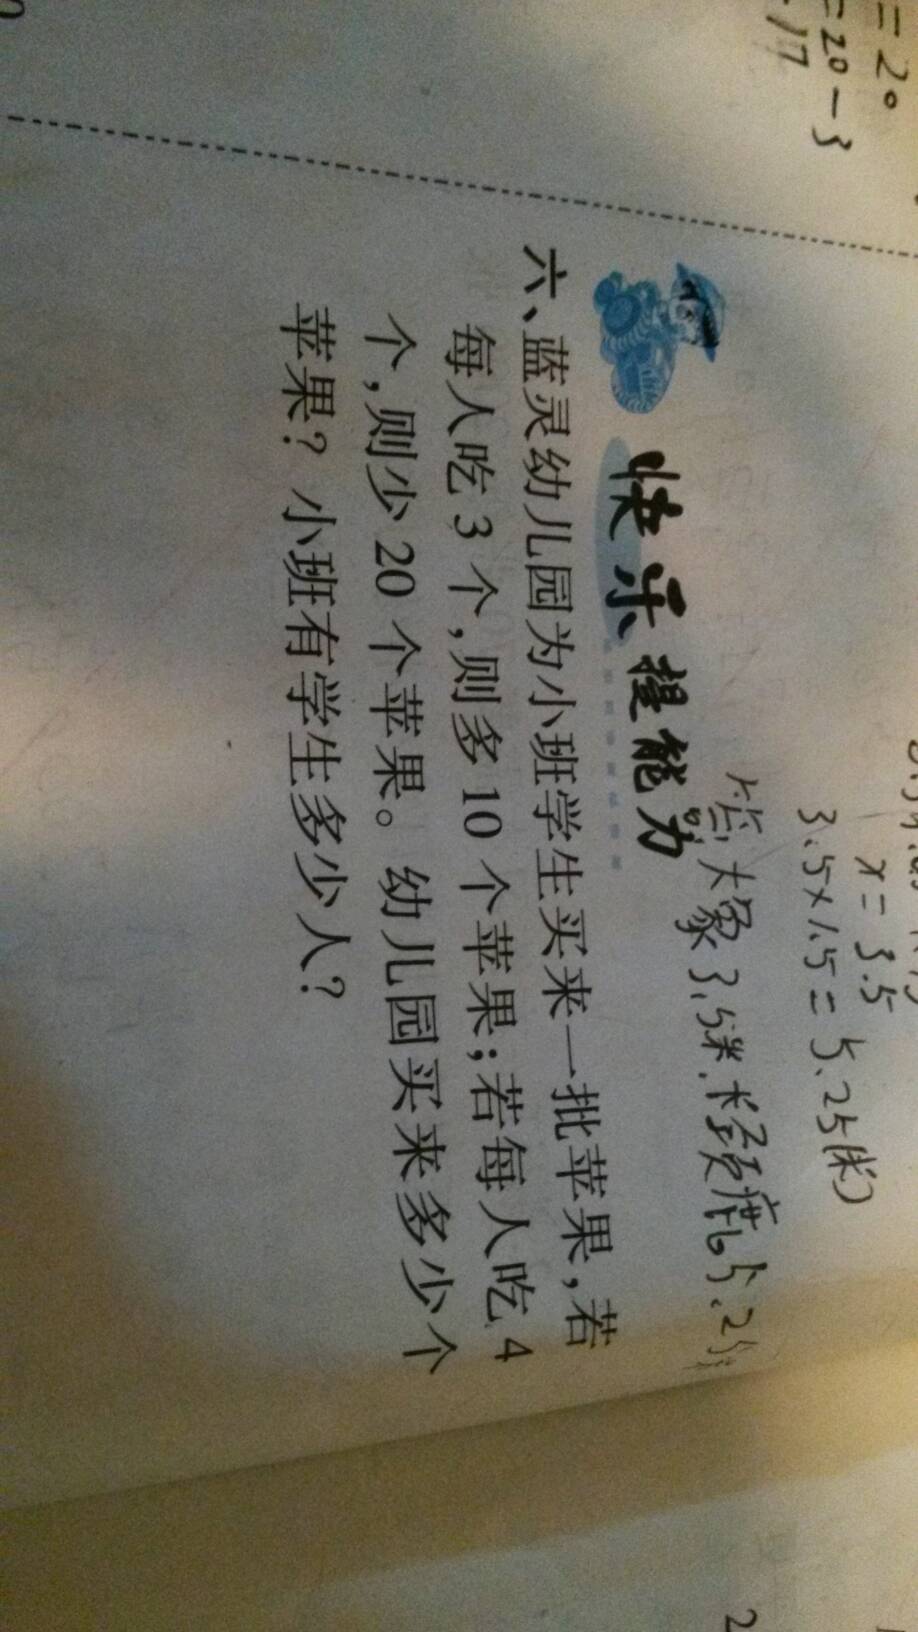 =20
=20-3
x=3.5
3.5×1.5=5.25(米)
答:大象3.5米,长颈鹿5.2
快乐提能力
六、蓝灵幼儿园为小班学生买来一批苹果,若
每人吃3个,则多10个苹果;若每人吃4
个,则少20个苹果。幼儿园买来多少个
苹果?小班有学生多少人?
2